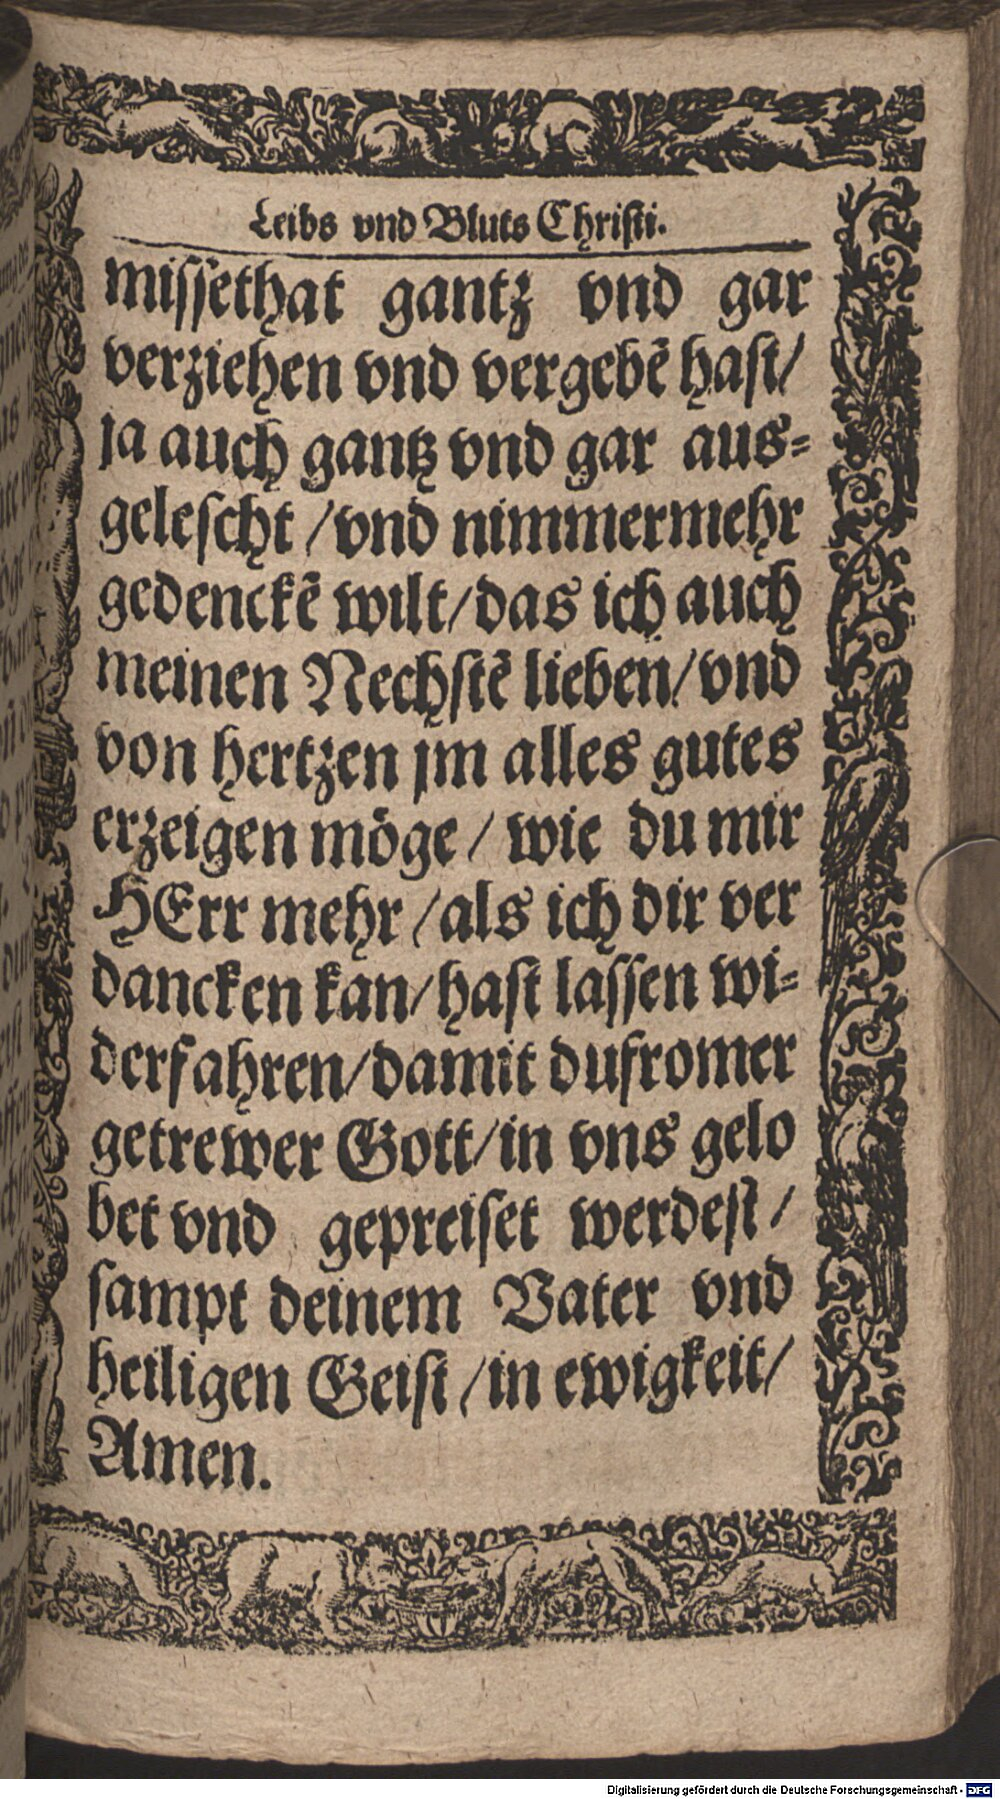 Leibs vnd Bluts Christi.
missethat gantz vnd gar
verziehen vnd vergebẽ hast/
ja auch gantz vnd gar aus-
gelescht /vnd nimmermehr
gedenckẽ wilt/das ich auch
meinen Nechstẽ lieben/vnd
von hertzen jm alles gutes
erzeigen möge/ wie du mir
HErr mehr /als ich dir ver
dancken kan/hast lassen wi-
derfahren/damit dufromer
getrewer Gott/in vns gelo
bet vnd gepreiset werdest/
sampt deinem Vater vnd
heiligen Geist /in ewigkeit/
Amen.
Digitalisierung gefördert durch die Deutsche Forschungsgemeinschaft - DFG